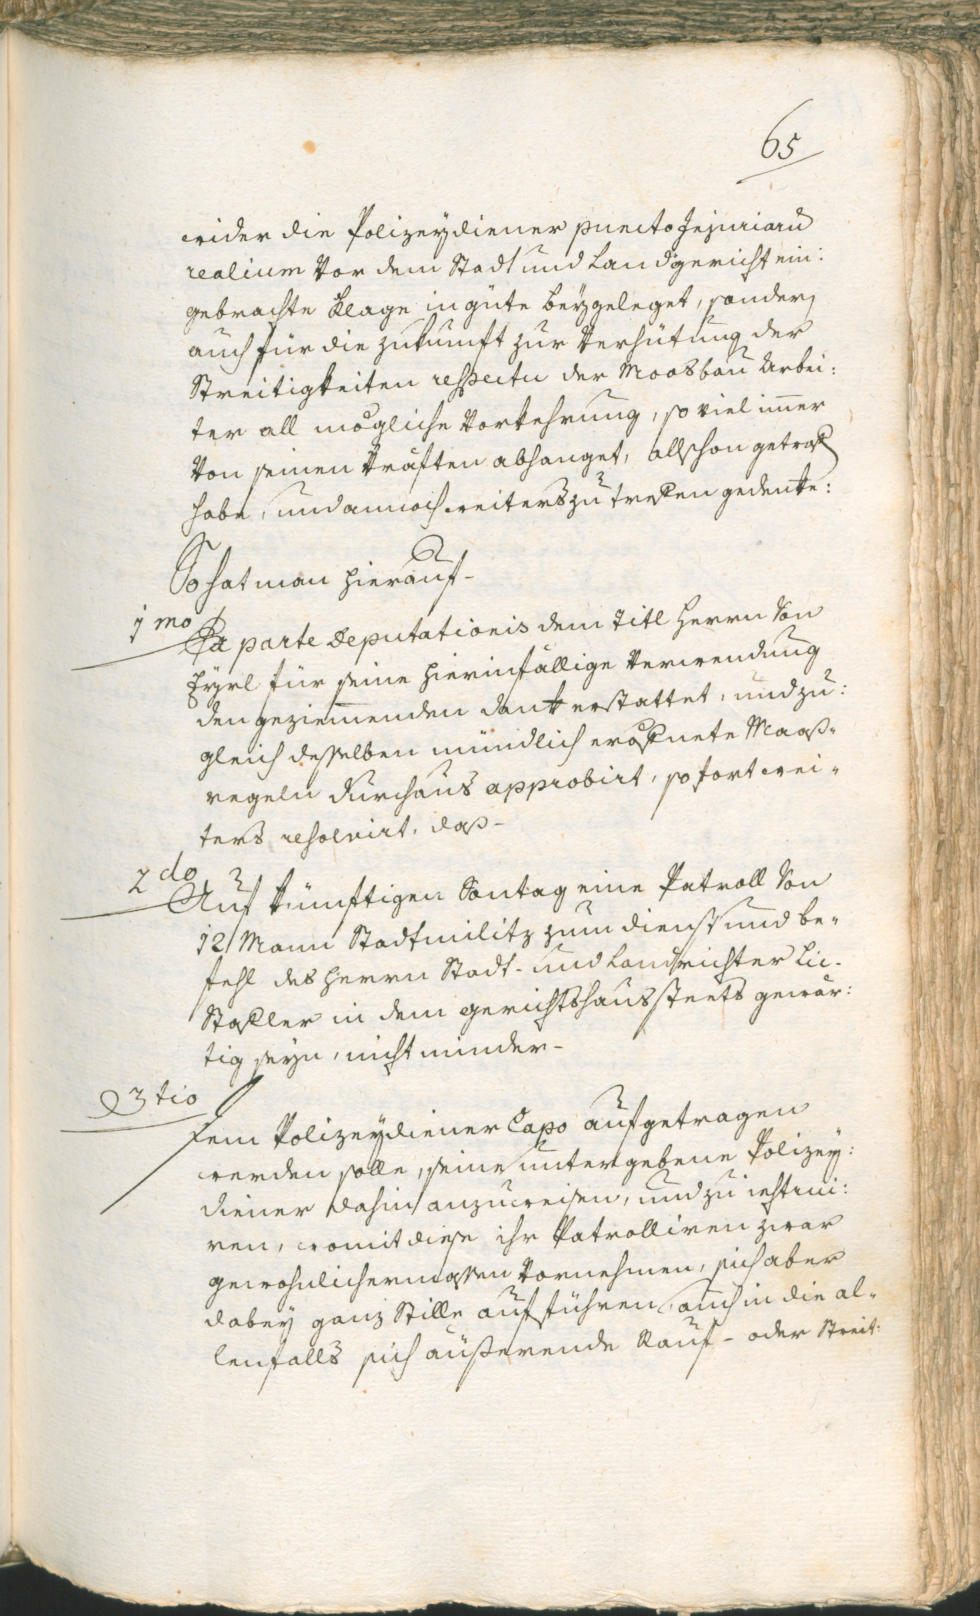 65
wider die Polizeydiener puncto Injuriarū
realium vor dem Stadt und Landgericht ein:
gebrachte Klage in güte beygeleget, sondern
auch für die zukunft zur Verhütung der
Streitigkeiten respectu der Moosbau Arbei:
ter all mögliche Vorkehrung, so viel im̄er
von seinen Kräften abhanget, allschon getroffen
habe, und annoch weiters zu treffen gedenke:
So hat man hierauf-
1mo
Ex parte Deputationis dem Titl Herrn von
Eyrl für seine hierinfällige Verwendung
den gezie͞menden dank erstattet, und zu:
gleich desselben mündlich eröffnete Maaß-
regeln durchaus approbirt, sofort wei-
ters resolvirt, daß-
2do
Auf künftigen Sontag eine Patroll von
12 Mann Stadtmilitz zum dienst und be-
fehl des Herrn Stadt- und Landrichter Lic.
Stoffler in dem gerichtshaus steets gewär:
tig seyn, nicht minder-
3tio
Dem Polizeydiener Capo aufgetragen
werden solle, seine untergebene Polizey:
diener dahin anzuweisen, und zu instrui:
ren, womit diese ihr Patrolliren zwar
gewohnlichermassen vornehmen, sich aber
dabey ganz Stille aufführen, auch in die al-
lenfalls sich äußerende Rauf- oder Streit: